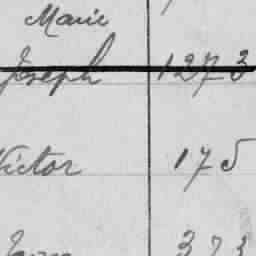 Marie
Joseph 1273
Victor 175
323